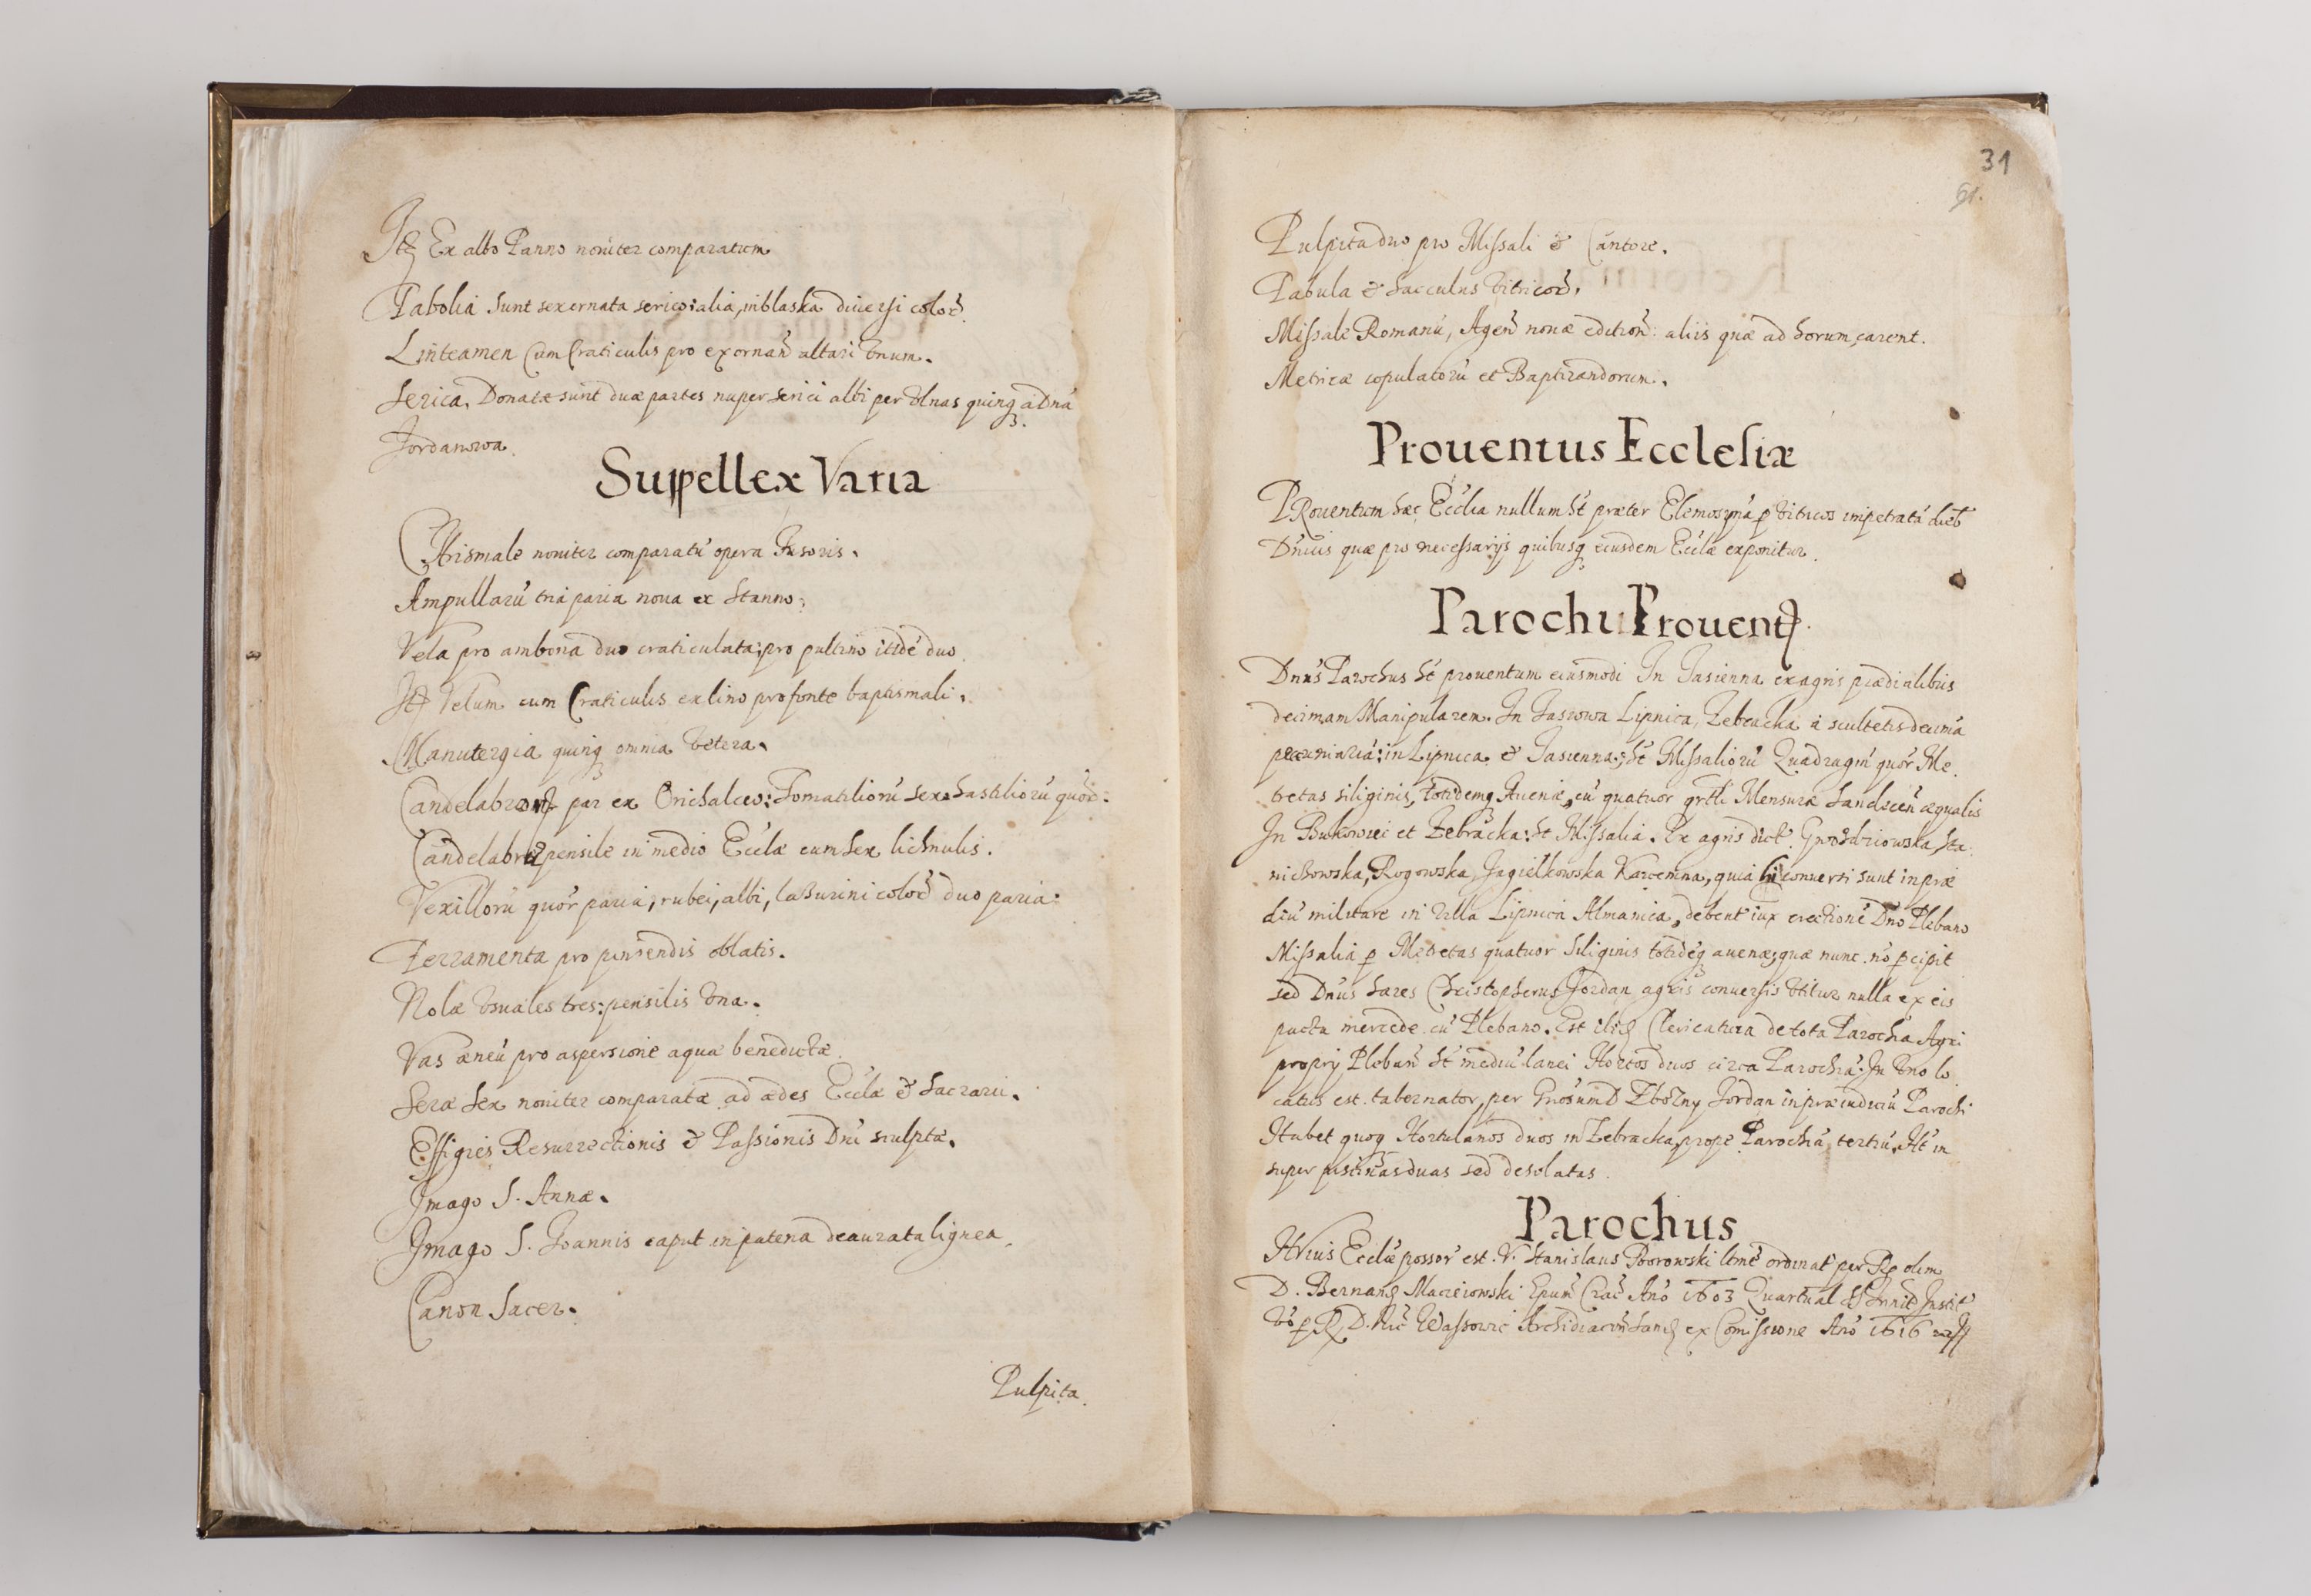 Itẽ Ex albo Panno noniter comparatum
Pabolia sunt sex ernata serico: alia, inblaska diuersi coloř.
Linteamen Cum Craticulis pro exornañ altari vnum.
Serica, Donatæ sunt duæ partes nuper serici albi per vlnas quinq; a Dnã
Jordanowa.
Suppellex Varia
Chrismale noniter comparatũ opera Fusoris.
Ampullarũ tria paria noua ex stanno;
Vela pro ambona duo craticulata; pro pultino itidẽ duo
Itẽ Velum cum Craticulis ex lino pro fonte baptismali.
Manutergia quinq; omnia vetera.
Candelabror par ex Orichalceo: Tornatiliorũ sex: hastiliorũ quõr.
Candelabrũ pensile in medio Ecclæ cum sex lichnulis.
Vexillorũ quõr paria, rubei, albi, lasurini coloř duo paria.
Ferramenta pro pinsendis oblatis.
Nolæ vsuales tres: pensilis vna.
Vas æneũ pro aspersione aquæ benedictæ.
Seræ sex noniter comparatæ ad ædes Ecclæ & Sacrarii.
Effigies Resurrectionis & Passionis Dni sculptæ.
Imago S. Annæ.
Imago S. Joannis caput in patena deaurata lignea.
Canon Sacer.
Pulpita.
31
61.
Pulpita duo pro Missali & Cantore.
Tabula & sacculus vitricoř.
Missale Romanũ, Ageñ nouæ editioñ: aliis quæ ad horum, carent.
Metricæ copulatorũ et Baptizandorum.
Prouentus Ecclesiæ
PRouentum hæc Ecclia nullum ht præter Elemosynã p vitricos impetratã dieb
Dnicis quæ pro necessarijs quibusq; eiusdem Ecclæ exponitur.
Parochi Prouent9.
Dnus Parochus ht prouentum eiusmodi In Jasienna ex agris prædialibus
decimam Manipularem. In Jastowa Lipnica, Zebracka à scultetis decimã
pecuniariã: in Lipnica & Jasienna; ht Missaliorũ Quadragin quõr Me
tretas siliginis, totidemq; Auenæ, cũ quatuor grtli Mensuræ Sandeceñ æqualis
In Bukowiec et Zebracka: ht Missalia. Ex agris dict. Gwoździowska, Sta
nichowska, Rogowska, Jagielkowska Karczmna, quia hi conuersi sunt in præ
diũ militare in villa Lipnica Almanica, debent iux erectionẽ Dno Plebano
Missalia p Metretas quatuor siliginis totidẽq; auenæ, quæ nunc nõ pcipit
sed Dnus hæres Christopherus Jordan agris conuersis vtitur nulla ex eis
pacta mercede cũ Plebano. Est Clericatura de tota Parochia Agri
proprij Plebañ ht mediũ lanei Hortos duos circa Parochiã: In vno lo
catus est tabernator, per Gnosum D Zbożny Jordan in præiudiciũ Parochi
Habet quoq; Hortulanos duos in Zebracka, prope Parochiã, tertiũ. Ht in
super piscinas duas sed desolatas.
Parochus
HVius Ecclæ possor est. V. Stanislaus Borowski ltmẽ ordinat per Rp olim
D. Bernard Macieiowski Epum Crac Anõ 1603 Quartual Instit
vo p R D. Nic Wassowic Archidiacoñ Sand ex Comissione Anõ 1616